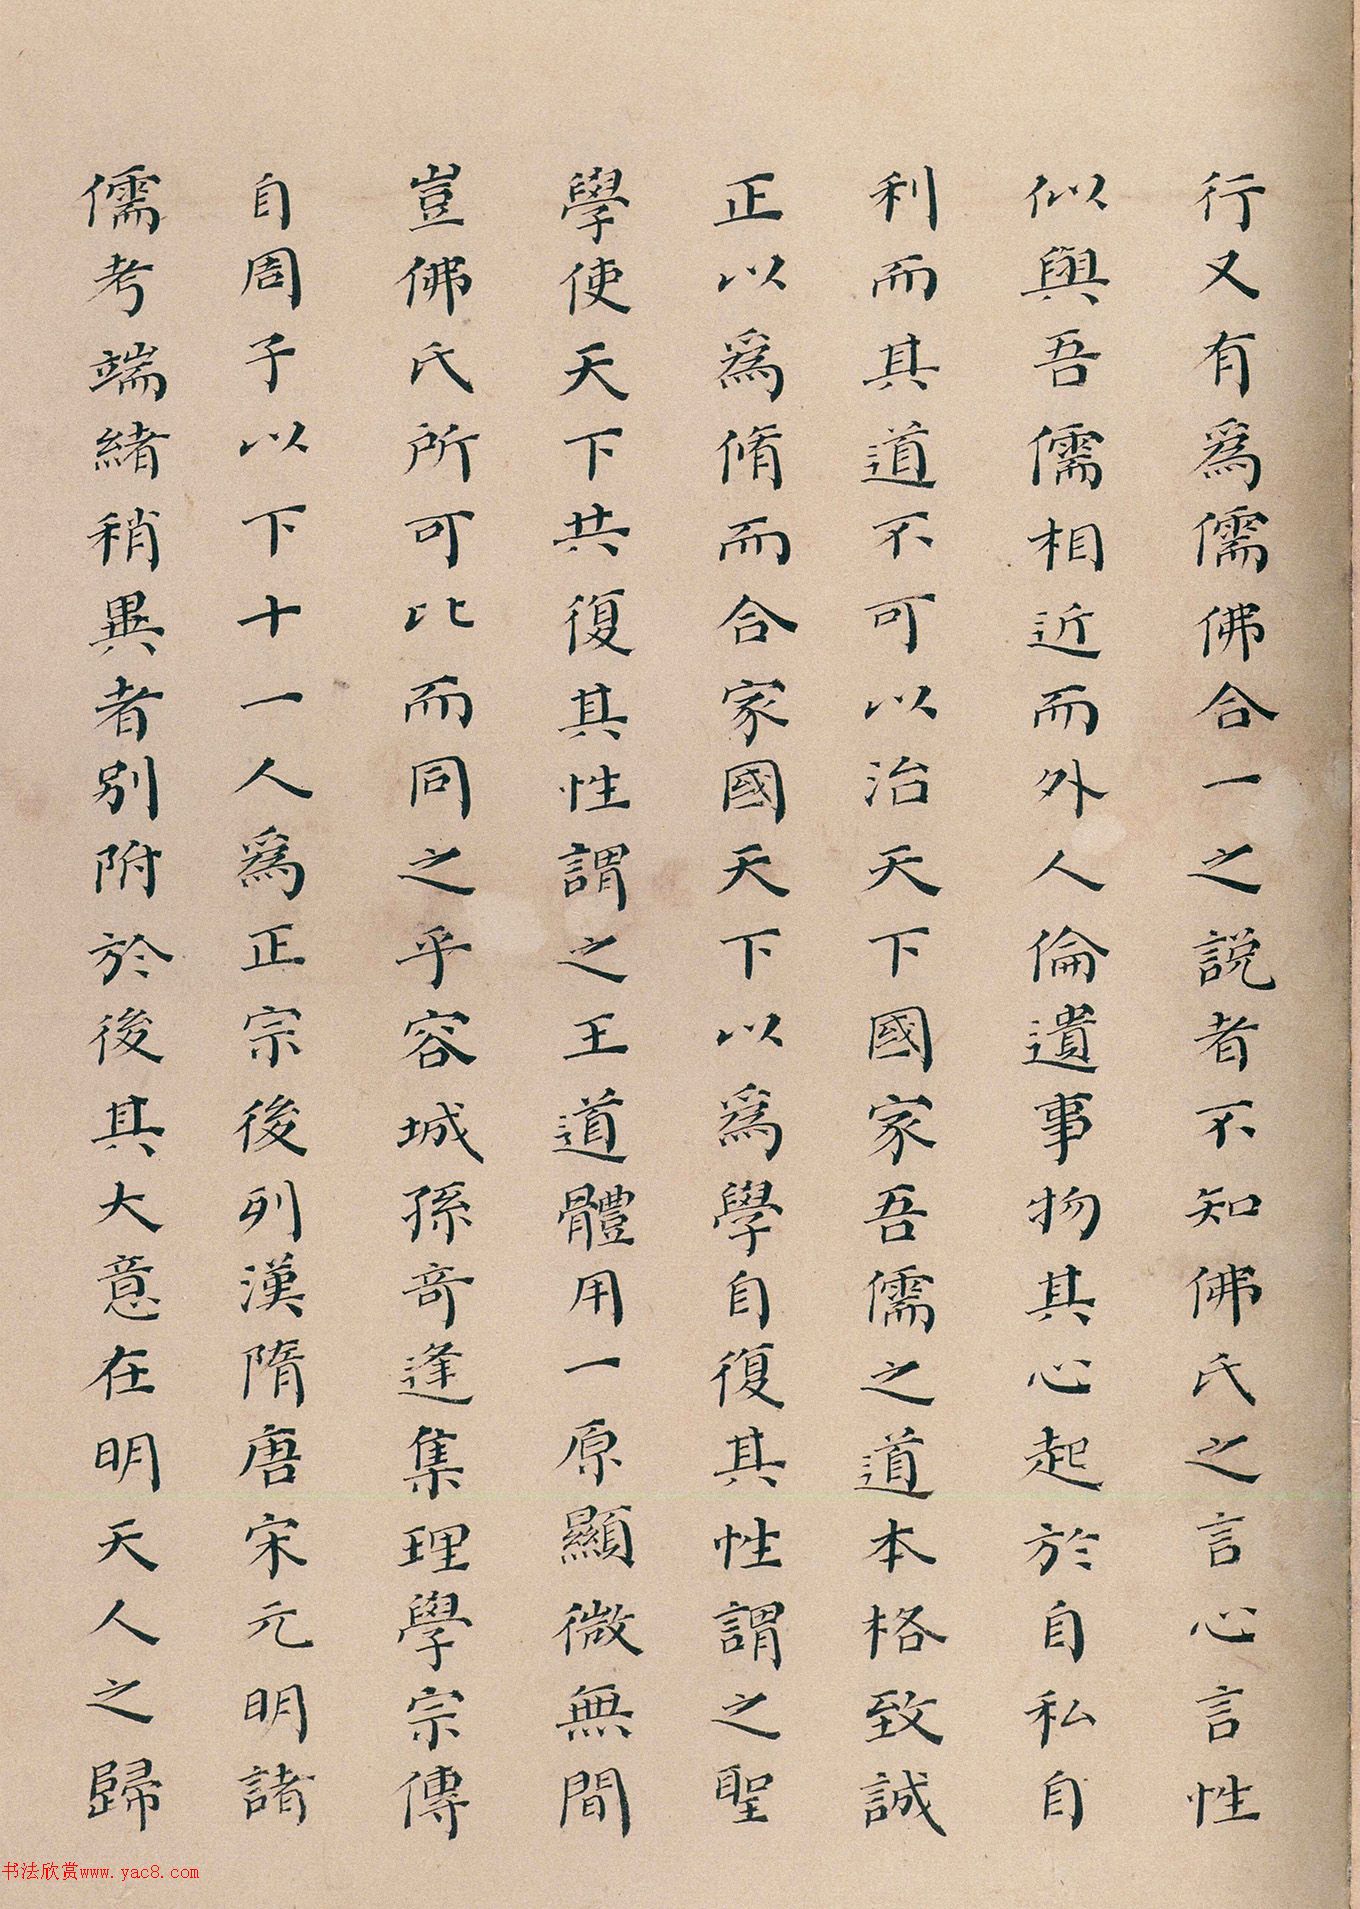 行又有爲儒佛合一之説者不知佛氏之言心言性
似與吾儒相近而外人倫遺事物其心起於自私自
利而其道不可以治天下國家吾儒之道本格致誠
正以爲脩而合家國天下以爲學自復其性謂之聖
學使天下共復其性謂之王道體用一原顯微無間
豈佛氏所可比而同之乎容城孫奇逢集理學宗傳
自周子以下十一人爲正宗後列漢隋唐宋元明諸
儒考端緒稍異者別附於後其大意在明天人之歸
书法欣赏www.yac8.com